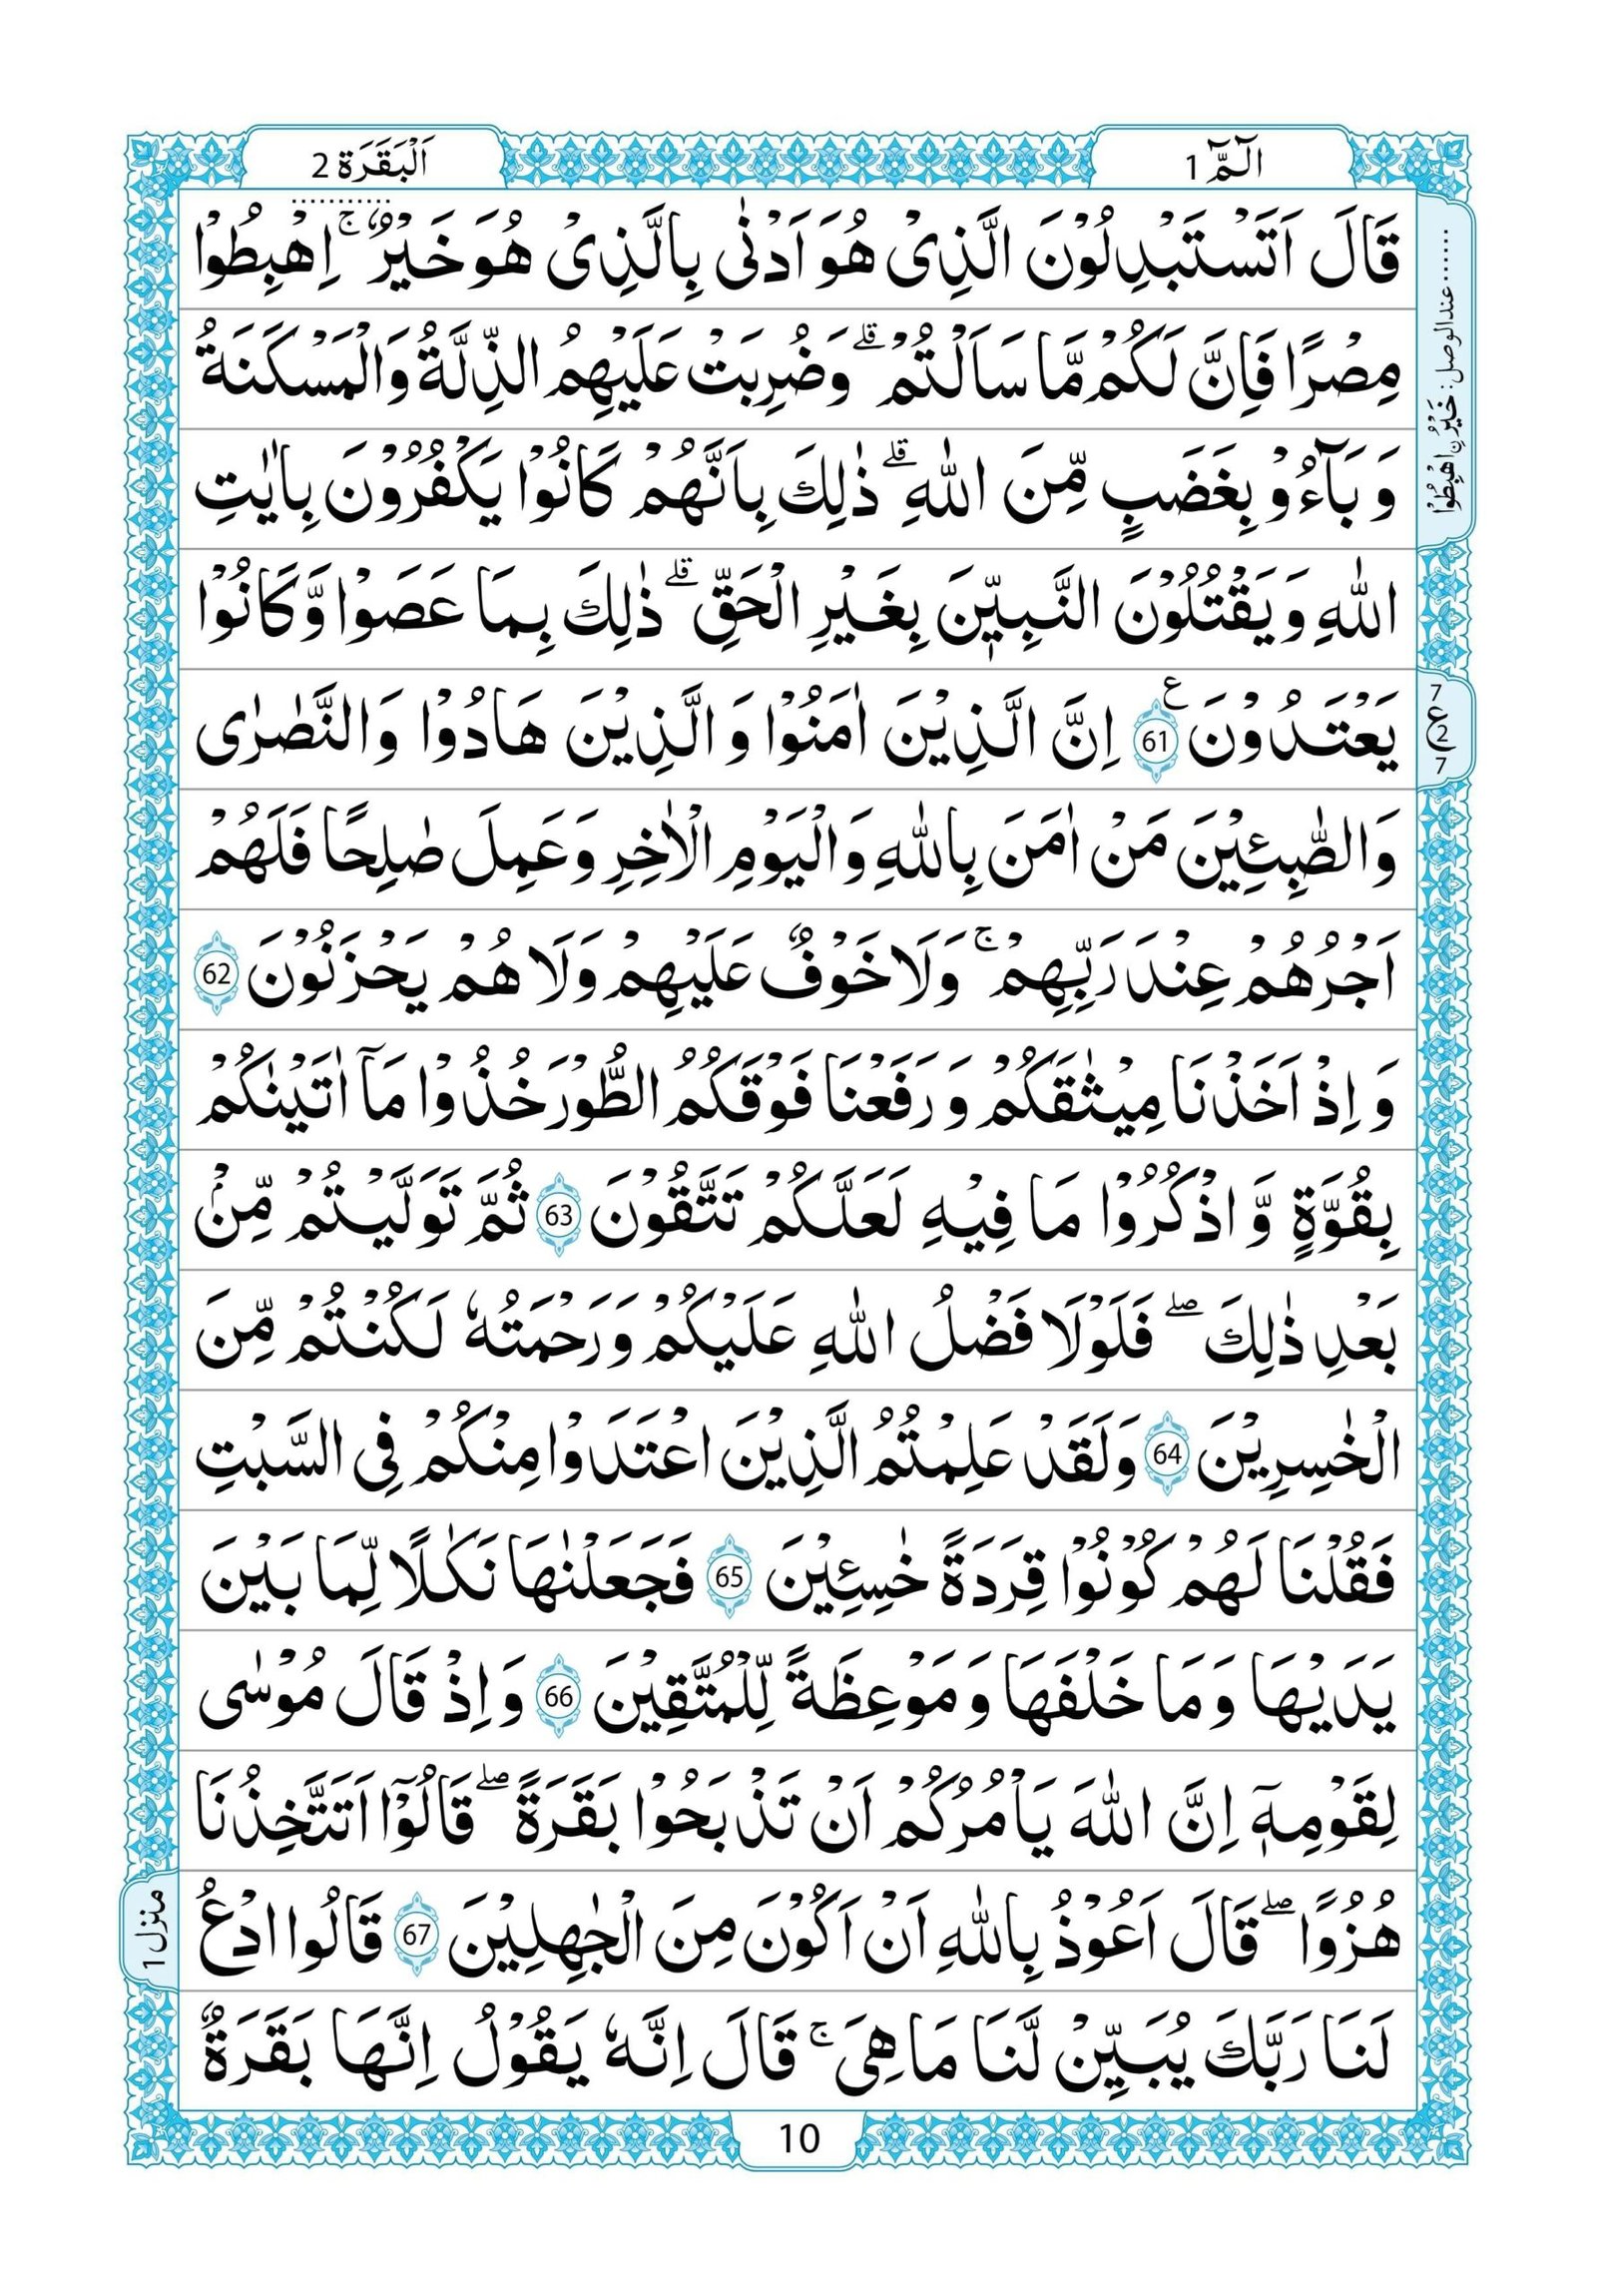 اَلْبَقَرَة 2
الٓمّٓ 1
قَالَ اَتَسْتَبْدِلُوْنَ الَّذِىْ هُوَ اَدْنٰى بِالَّذِىْ هُوَ خَيْرٌ ؕۚ اِهْبِطُوْا
مِصْرًا فَاِنَّ لَكُمْ مَّا سَاَلْتُمْ ؕ وَضُرِبَتْ عَلَيْهِمُ الذِّلَّةُ وَالْمَسْكَنَةُ
وَ بَآءُوْ بِغَضَبٍ مِّنَ اللّٰهِ ۗ ذٰلِكَ بِاَنَّهُمْ كَانُوْا يَكْفُرُوْنَ بِاٰيٰتِ
اللّٰهِ وَ يَقْتُلُوْنَ النَّبِيّٖنَ بِغَيْرِ الْحَقِّ ۗ ذٰلِكَ بِمَا عَصَوْا وَّكَانُوْا
يَعْتَدُوْنَ ع 61 اِنَّ الَّذِيْنَ اٰمَنُوْا وَ الَّذِيْنَ هَادُوْا وَالنَّصٰرٰى
وَالصّٰبِـِٕيْنَ مَنْ اٰمَنَ بِاللّٰهِ وَ الْيَوْمِ الْاٰخِرِ وَعَمِلَ صٰلِحًا فَلَهُمْ
اَجْرُهُمْ عِنْدَ رَبِّهِمْ ۚ وَلَا خَوْفٌ عَلَيْهِمْ وَلَا هُمْ يَحْزَنُوْنَ 62
وَ اِذْ اَخَذْنَا مِيْثٰقَكُمْ وَ رَفَعْنَا فَوْقَكُمُ الطُّوْرَ خُذُوْا مَآ اٰتَيْنٰكُمْ
بِقُوَّةٍ وَّ اذْكُرُوْا مَا فِيْهِ لَعَلَّكُمْ تَتَّقُوْنَ 63 ثُمَّ تَوَلَّيْتُمْ مِّنْۢ
بَعْدِ ذٰلِكَ ۖ فَلَوْلَا فَضْلُ اللّٰهِ عَلَيْكُمْ وَرَحْمَتُهٗ لَكُنْتُمْ مِّنَ
الْخٰسِرِيْنَ 64 وَلَقَدْ عَلِمْتُمُ الَّذِيْنَ اعْتَدَوْا مِنْكُمْ فِى السَّبْتِ
فَقُلْنَا لَهُمْ كُوْنُوْا قِرَدَةً خٰسِـِٕيْنَ 65 فَجَعَلْنٰهَا نَكٰلًا لِّمَا بَيْنَ
يَدَيْهَا وَ مَا خَلْفَهَا وَ مَوْعِظَةً لِّلْمُتَّقِيْنَ 66 وَ اِذْ قَالَ مُوْسٰى
لِقَوْمِهٖٓ اِنَّ اللّٰهَ يَاْمُرُكُمْ اَنْ تَذْبَحُوْا بَقَرَةً ۖ قَالُوْٓا اَتَتَّخِذُنَا
هُزُوًا ۖ قَالَ اَعُوْذُ بِاللّٰهِ اَنْ اَكُوْنَ مِنَ الْجٰهِلِيْنَ 67 قَالُوا ادْعُ
لَنَا رَبَّكَ يُبَيِّنْ لَّنَا مَا هِىَ ۚ قَالَ اِنَّهٗ يَقُوْلُ اِنَّهَا بَقَرَةٌ
عند الوصل: خَيْرُنِ اهْبِطُوْا
7
ع 2
7
منزل 1
10